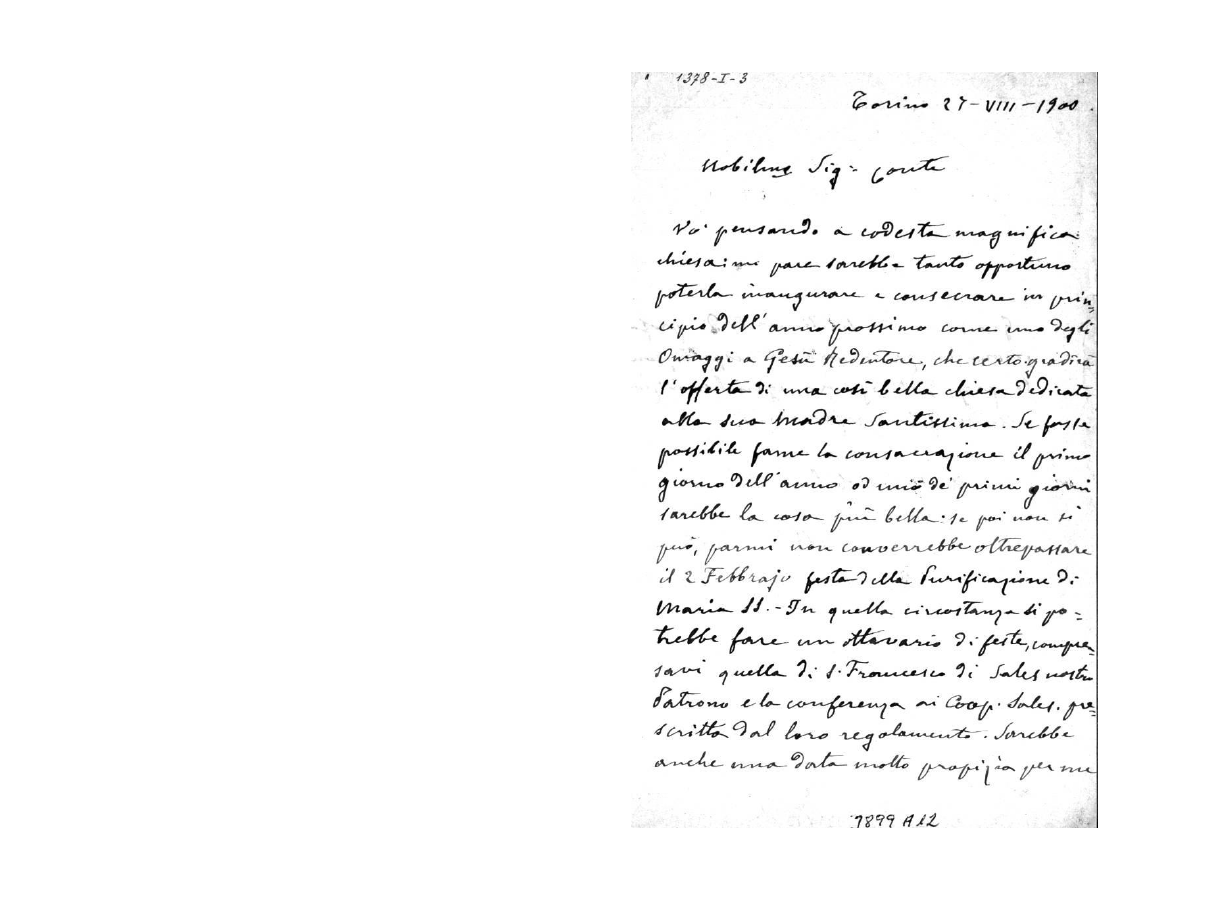 1378-I-3
Torino 27-VIII-1900.
Nobilme Sig= Conte
Vo' pensando a codesta magnifica
chiesa: mi pare sarebbe tanto opportuno
poterla inaugurare e consecrare in prin=
cipio dell'anno prossimo come uno degli
Omaggi a Gesù Redentore, che certo gradirà
l'offerta di una così bella chiesa dedicata
alla sua Madre Santissima. Se fosse
possibile farne la consacrazione il primo
giorno dell'anno od uno de' primi giorni
sarebbe la cosa più bella: se poi non si
può, parmi non converrebbe oltrepassare
il 2 Febbrajo festa della Purificazione di
Maria SS.- In quella circostanza si po=
trebbe fare un ottavario di feste, compre=
savi quella di S. Francesco di Sales nostro
Patrono e la conferenza ai Coop. Sales. pre=
scritta dal loro regolamento. Sarebbe
anche una data molto propizia per me
7899 A12